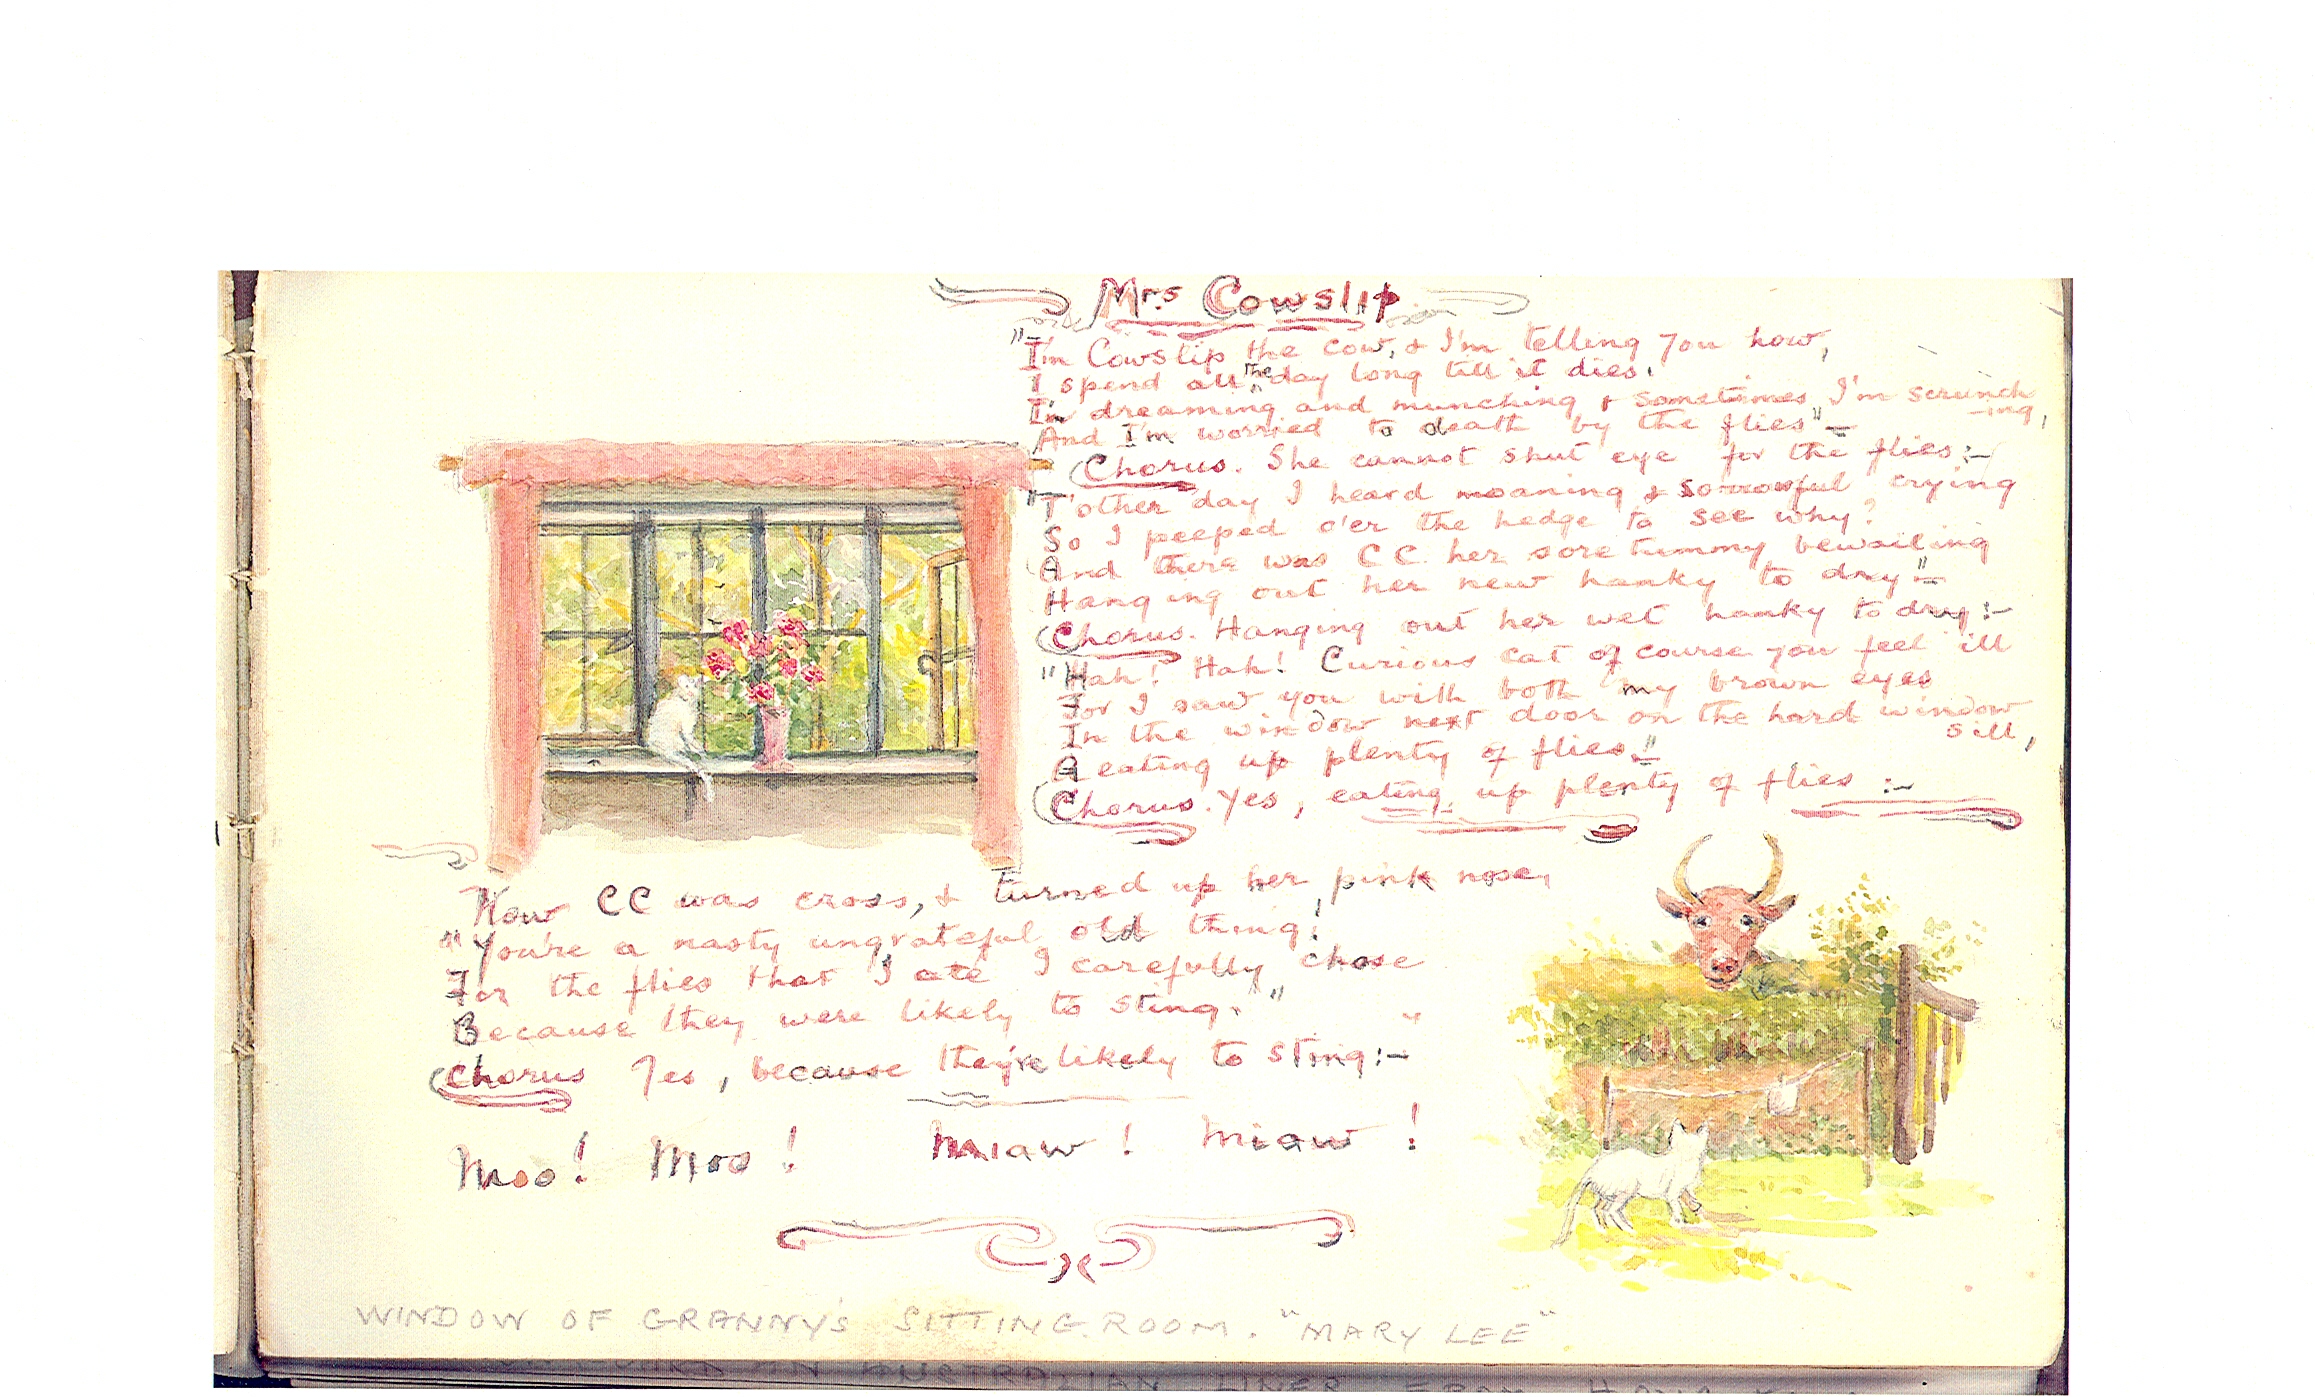 Mrs Cowslip
"I'm Cowslip the cow, & I'm telling you how,
I spend all the day long till it dies.
I'm dreaming and munching & sometimes I'm scrunch
-ing,
And I'm worried to death by the flies" –
Chorus. She cannot shut eye for the flies :–
"T'other day I heard moaning & sorrowful crying
So I peeped o'er the hedge to see why?
And there was C C. her sore tummy bewailing
Hanging out her new hanky to dry" –
Chorus. Hanging out her wet hanky to dry :–
"Hah! Hah! Curious cat of course you feel ill
For I saw you with both my brown eyes
In the window next door on the hard window
sill,
A eating up plenty of flies."
Chorus. Yes, eating up plenty of flies :–
Now CC was cross, & turned up her pink nose,
"You're a nasty ungrateful old thing!
For the flies that I ate I carefully chose
Because they were likely to sting."
Chorus Yes, because they're likely to sting :–
Moo! Moo! Miaw! Miaw!
WINDOW OF GRANNY'S SITTING ROOM. "MARY LEE"
AN AUSTRALIAN LINER FROM